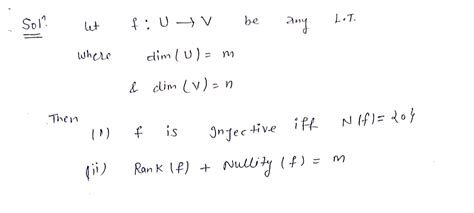 Solⁿ. let f : U → V be any L.T.
where dim(U) = m
& dim(V) = n
Then
(i) f is Injective iff N(f) = {0}
(ii) Rank(f) + Nullity(f) = m